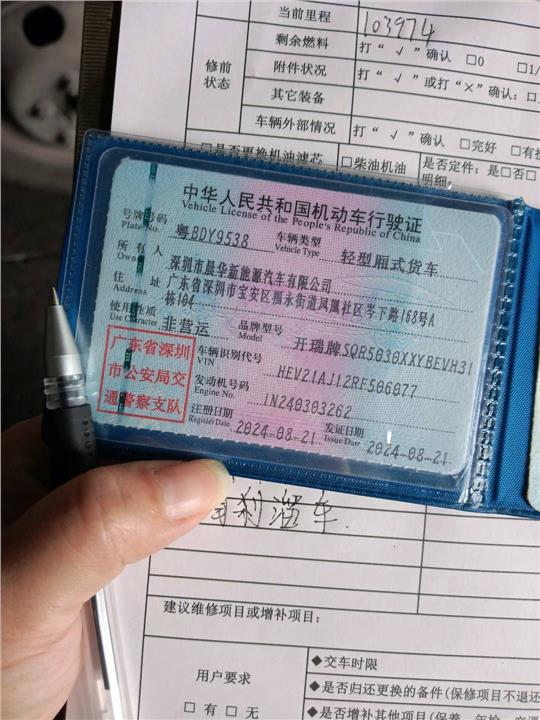 当前里程 103974
剩余燃料 打“√”确认 □0 □1/
修前状态
附件状况 打“√”或打“×”确认：□
其它装备
车辆外部情况 打“√”确认 □完好 □有
□是否更换机油滤芯 □柴油机油 是否定件：是□否□
明细
中华人民共和国机动车行驶证
Vehicle License of the People's Republic of China
号牌号码 Plate No. 粤BDY9538 车辆类型 Vehicle Type 轻型厢式货车
所有人 Owner 深圳市晨华新能源汽车有限公司
住址 Address 广东省深圳市宝安区福永街道凤凰社区岑下路168号A
栋104
使用性质 Use Character 非营运 品牌型号 Model 开瑞牌SQR5030XXYBEVH31
广东省深圳
市公安局交
通警察支队
车辆识别代号 VIN HEV21AJ12RF506077
发动机号码 Engine No. 1N240303262
注册日期 Register Date 2024-08-21 发证日期 Issue Date 2024-08-21
刹
车
建议维修项目或增补项目：
用户要求
□有 □无
◆交车时限
◆是否归还更换的备件(保修项目不退还
◆是否增补其他项目(保养、年检、交